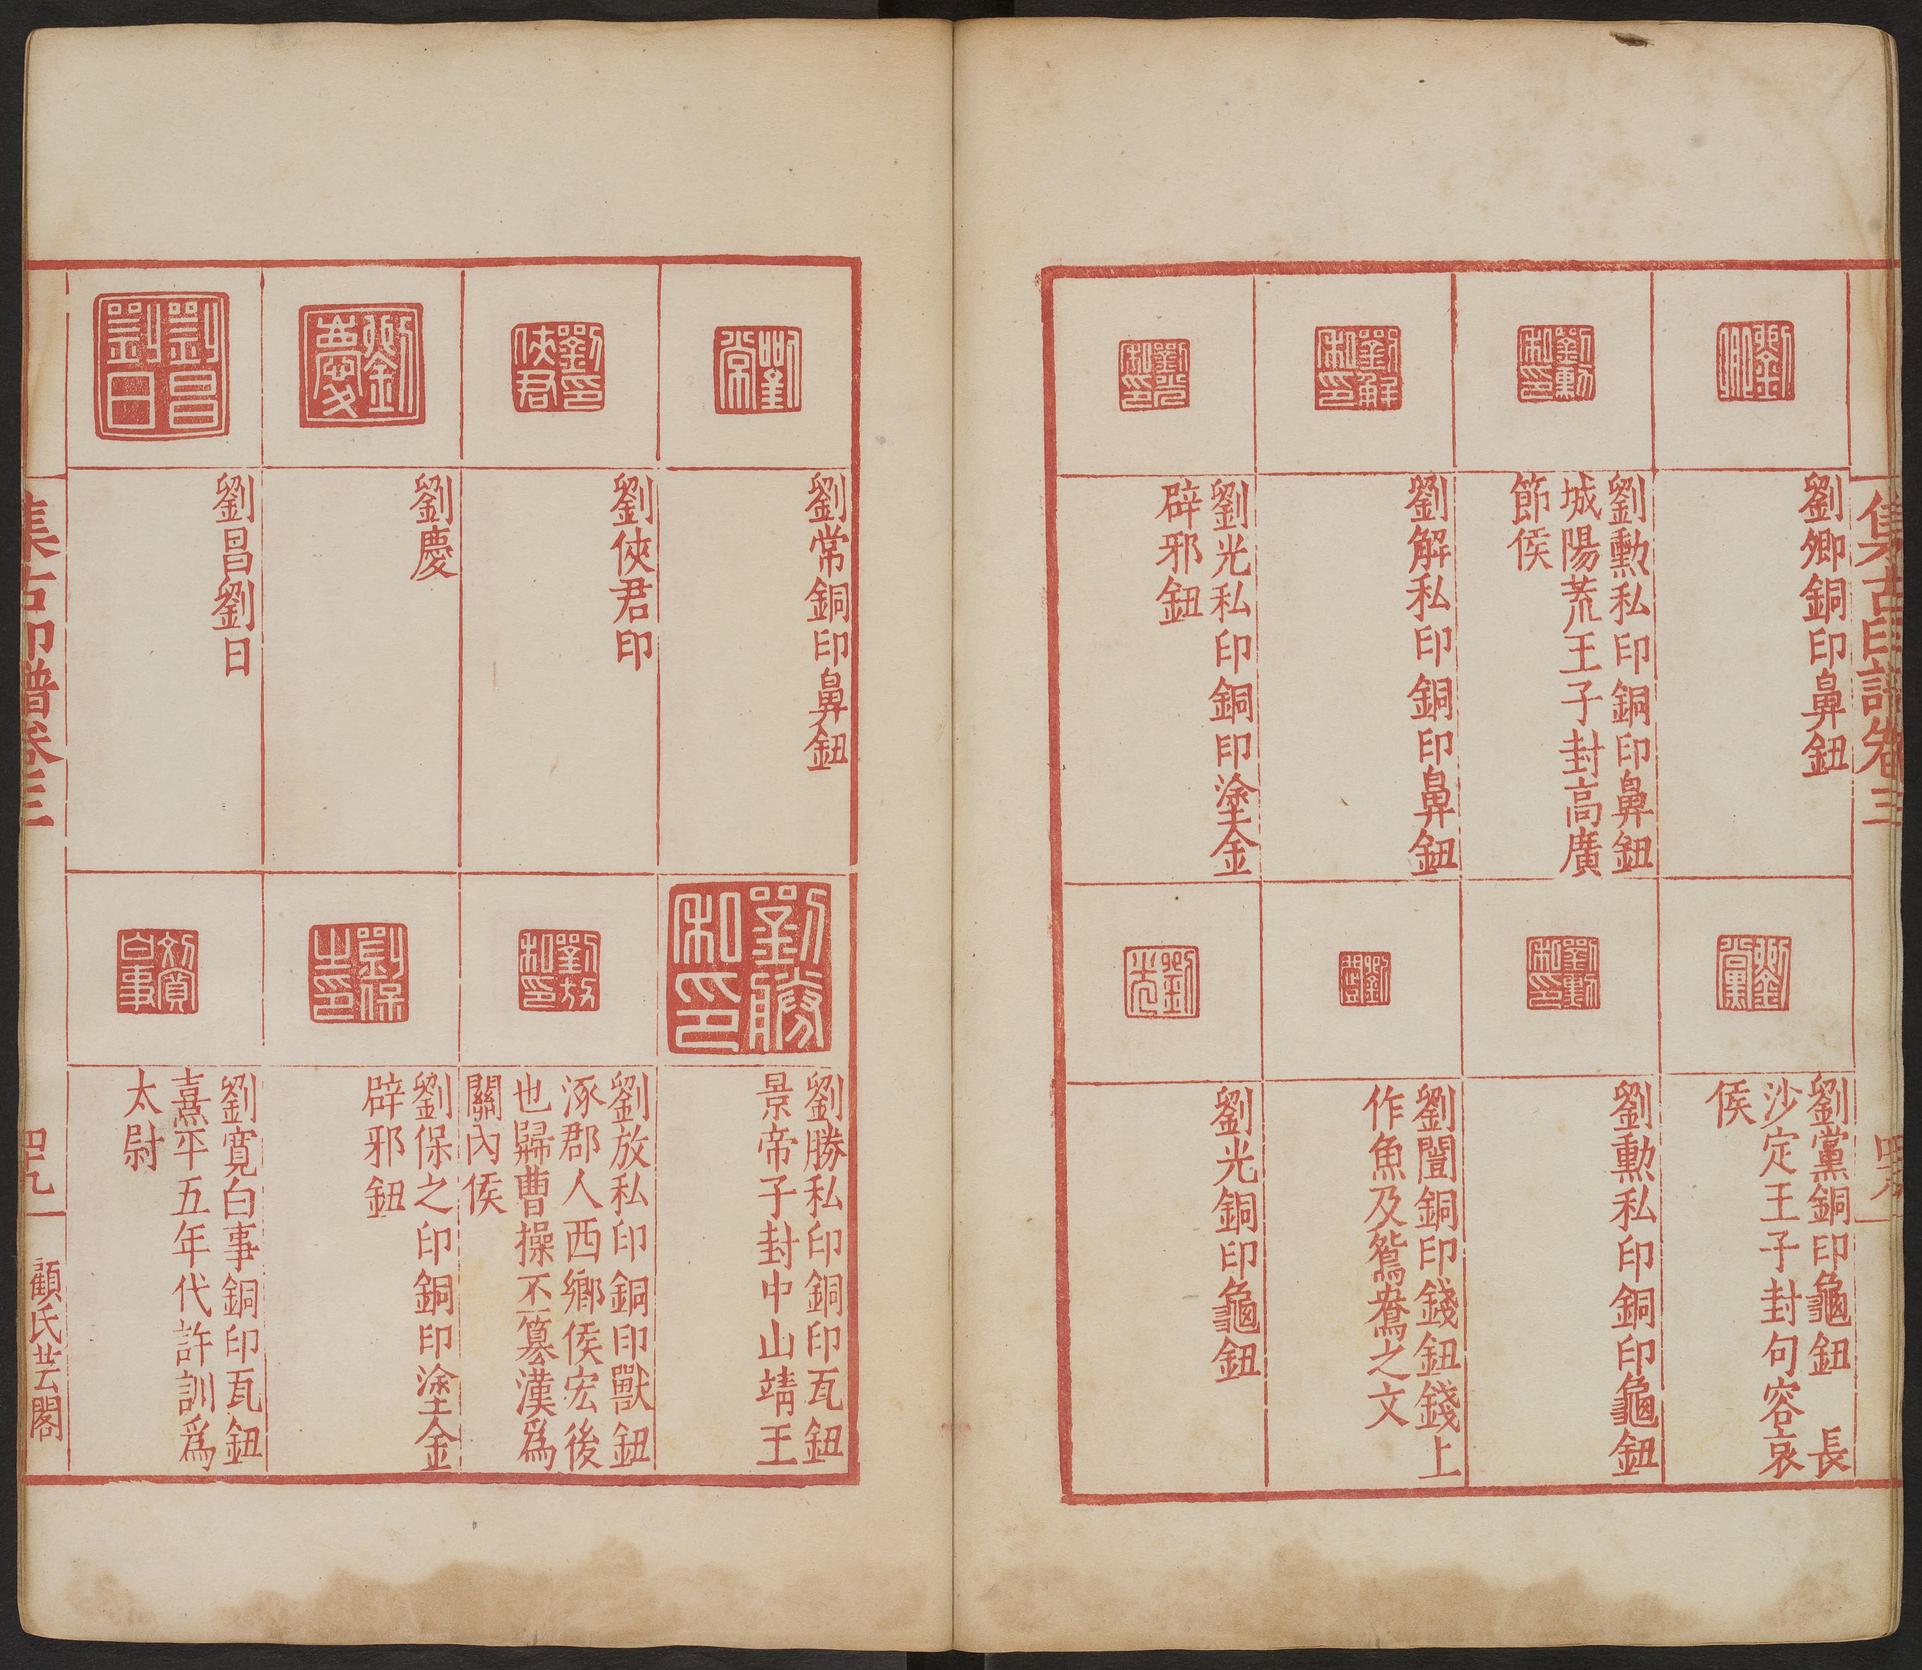 集古印譜卷三
劉卿銅印鼻鈕
劉勳私印銅印鼻鈕
城陽荒王子封高廣
節侯
劉解私印銅印鼻鈕
劉光私印銅印塗金
辟邪鈕
劉黨銅印龜鈕 長
沙定王子封句容哀
侯
劉勳私印銅印龜鈕
劉闓銅印錢鈕錢上
作魚及鴛鴦之文
劉光銅印龜鈕
劉常銅印鼻鈕
劉俠君印
劉慶
劉昌劉日
劉勝私印銅印瓦鈕
景帝子封中山靖王
劉放私印銅印獸鈕
涿郡人西鄉侯宏後
也歸曹操丕篡漢爲
關內侯
劉保之印銅印塗金
辟邪鈕
劉寬白事銅印瓦鈕
熹平五年代許訓爲
太尉
集古印譜卷三
四九
顧氏芸閣